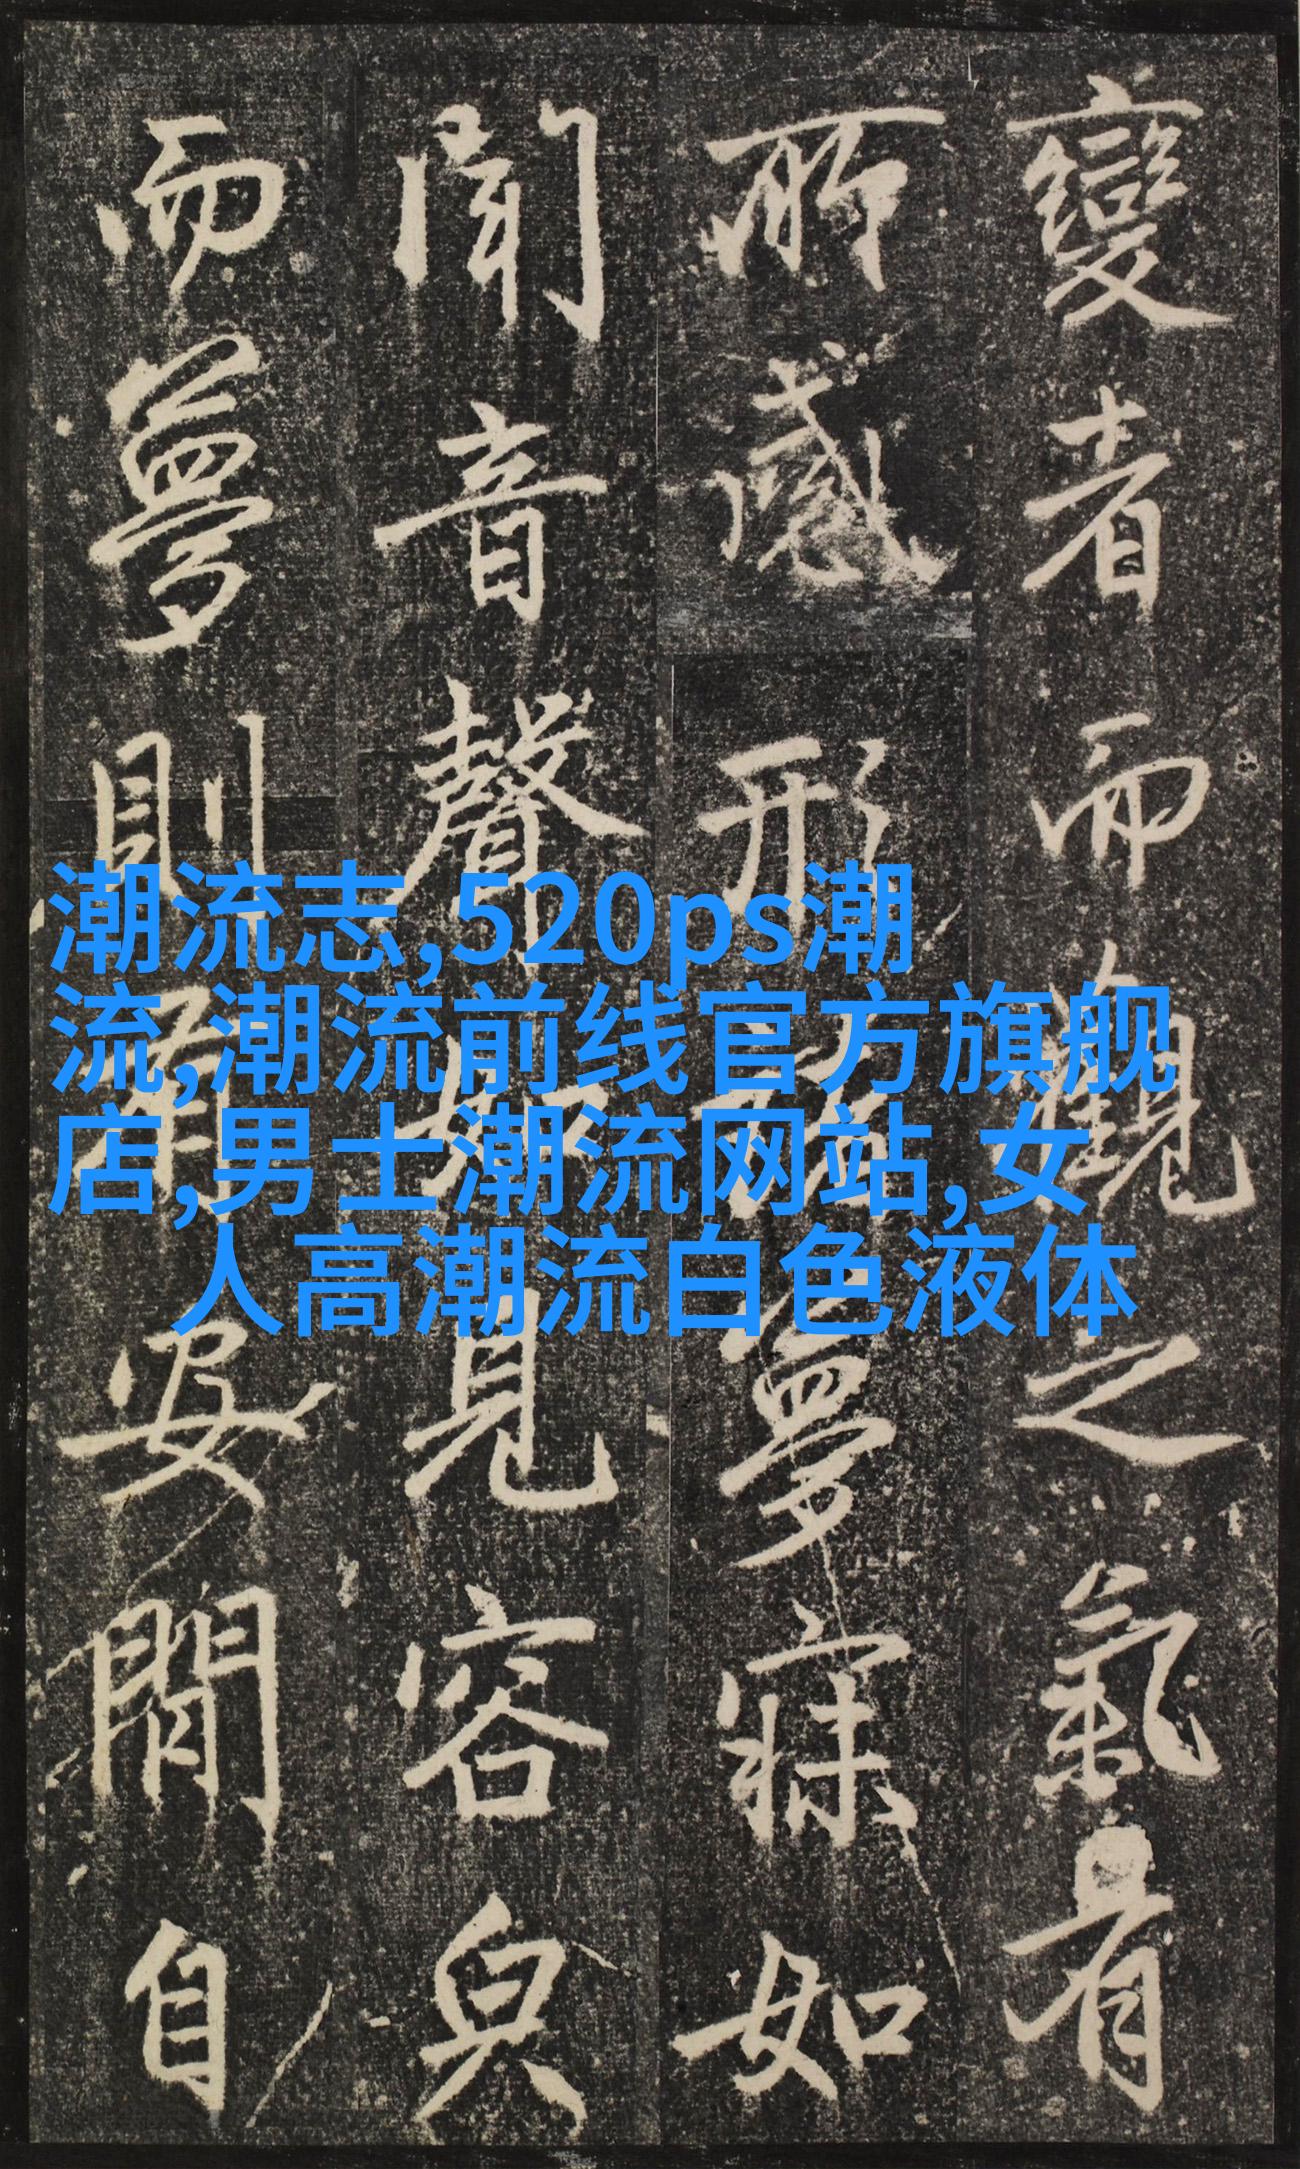 變者而觀之氣有
所感形夢寐如
聞音聲如見容皃
而夢則安閒自
潮流志,520ps潮
流,潮流前线官方旗舰
店,男士潮流网站,女
人高潮流白色液体